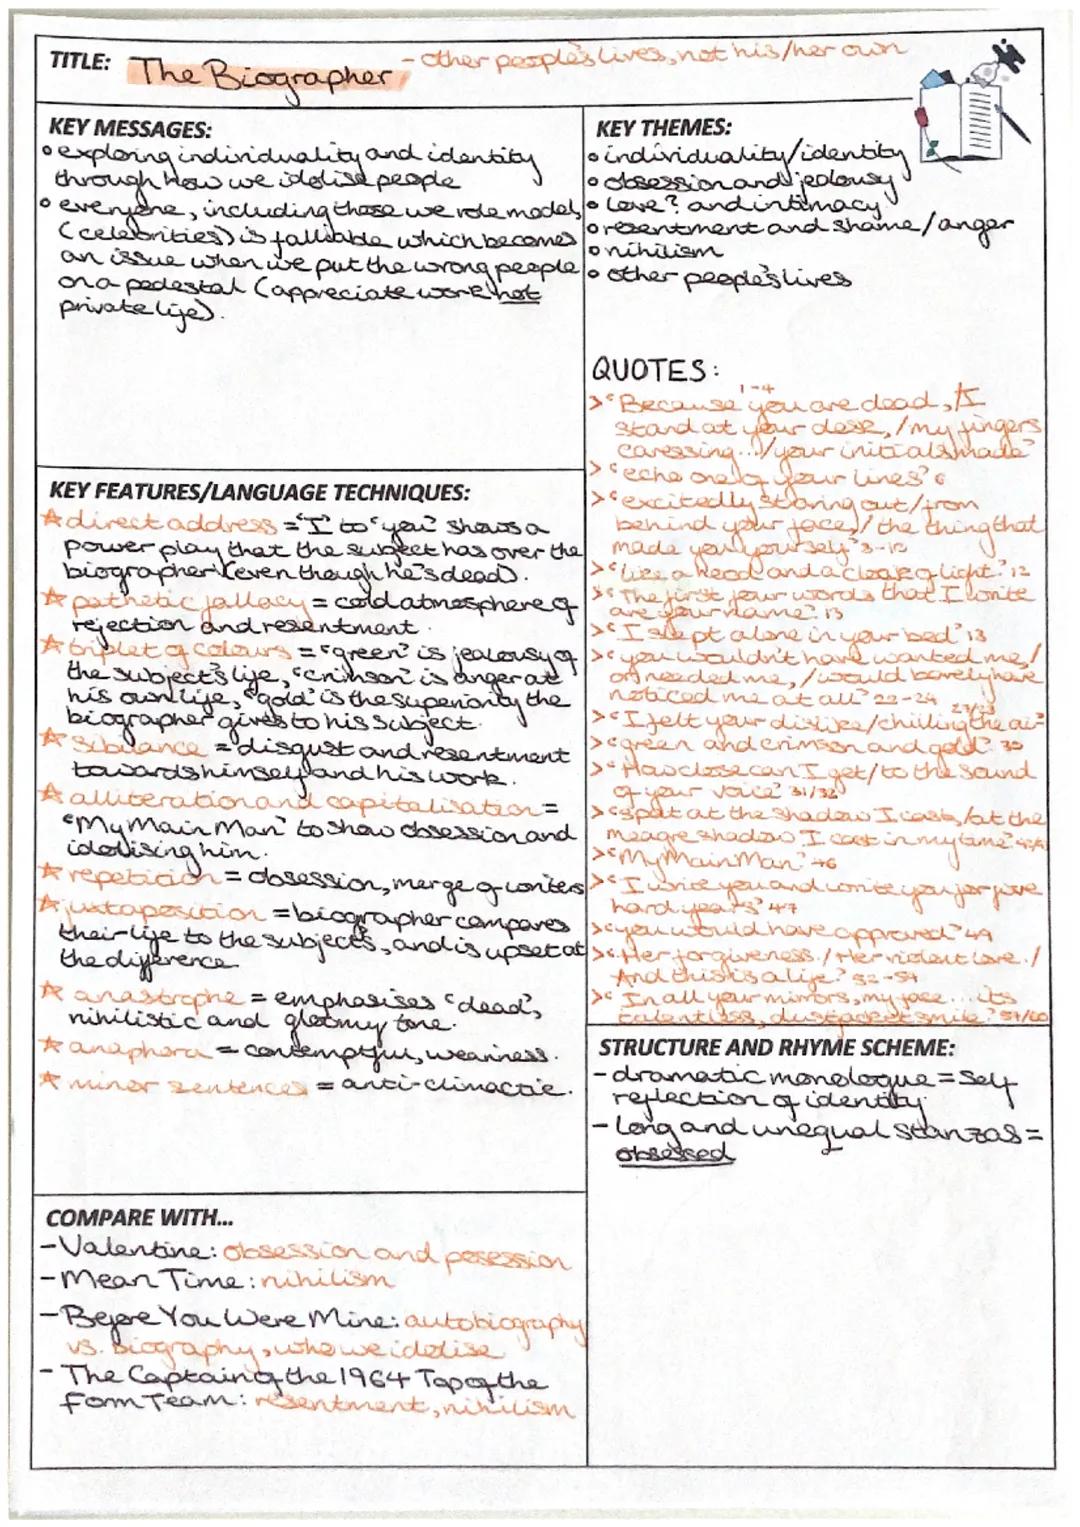 TITLE: The Biographer - other people's lives, not his/her own
KEY MESSAGES:
• exploring individuality and identity
through how we idolise people
• everyone, including those we role model
(celebrities) is falliable which becomes
an issue when we put the wrong people
on a pedestal (appreciate work not
private life).
KEY THEMES:
• individuality/identity
• obsession and jealousy
• love? and intimacy
• resentment and shame/anger
• nihilism
• other people's lives
QUOTES:
1-4
> "Because you are dead,/I
stand at your desk,/my fingers
caressing.../your initials made"
> "echo one of your lines" 6
> "excitedly staring out/from
behind your face,/the thing that
made you yourself" 8-10
> "like a hood and a cloak of light." 12
> "The first four words that I write
are your name." 13
> "I slept alone in your bed" 13
> "you wouldn't have wanted me,/
or needed me,/would barely have
noticed me at all" 22-24
> "I felt your dislike/chilling the air" 27/28
> "green and crimson and gold" 30
> "How close can I get/to the sound
of your voice" 31/32
> "spat at the shadow I cast,/at the
meagre shadow I cast in my time"
> "My Main Man" 46
> "I write you and write you for five
hard years" 47
> "you would have approved" 49
> "Her forgiveness./Her violent love./
And this is a life." 52-54
> "In all your mirrors, my face... its
talentless, dustjacket smile." 57/60
KEY FEATURES/LANGUAGE TECHNIQUES:
☆ direct address = "I" to "you" shows a
power play that the subject has over the
biographer (even though he's dead).
☆ pathetic fallacy = cold atmosphere of
rejection and resentment.
☆ triplet of colours = "green" is jealousy of
the subject's life, "crimson" is anger at
his own life, "gold" is the superiority the
biographer gives to his subject.
☆ sibilance = disgust and resentment
towards himself and his work.
☆ alliteration and capitalisation =
"My Main Man" to show obsession and
idolising him.
☆ repetition = obsession, merge of writers
☆ juxtaposition = biographer compares
their life to the subjects, and is upset at
the difference
☆ anastrophe = emphasises "dead",
nihilistic and gloomy tone.
☆ anaphora = contemptful, weariness.
☆ minor sentences = anti-climactic.
STRUCTURE AND RHYME SCHEME:
- dramatic monologue = self
reflection of identity
- Long and unequal stanzas =
obsessed
COMPARE WITH...
- Valentine: obsession and posession
- Mean Time: nihilism
- Before You Were Mine: autobiography
vs. biography, who we idolise
- The Captain of the 1964 Top of the
Form Team: resentment, nihilism